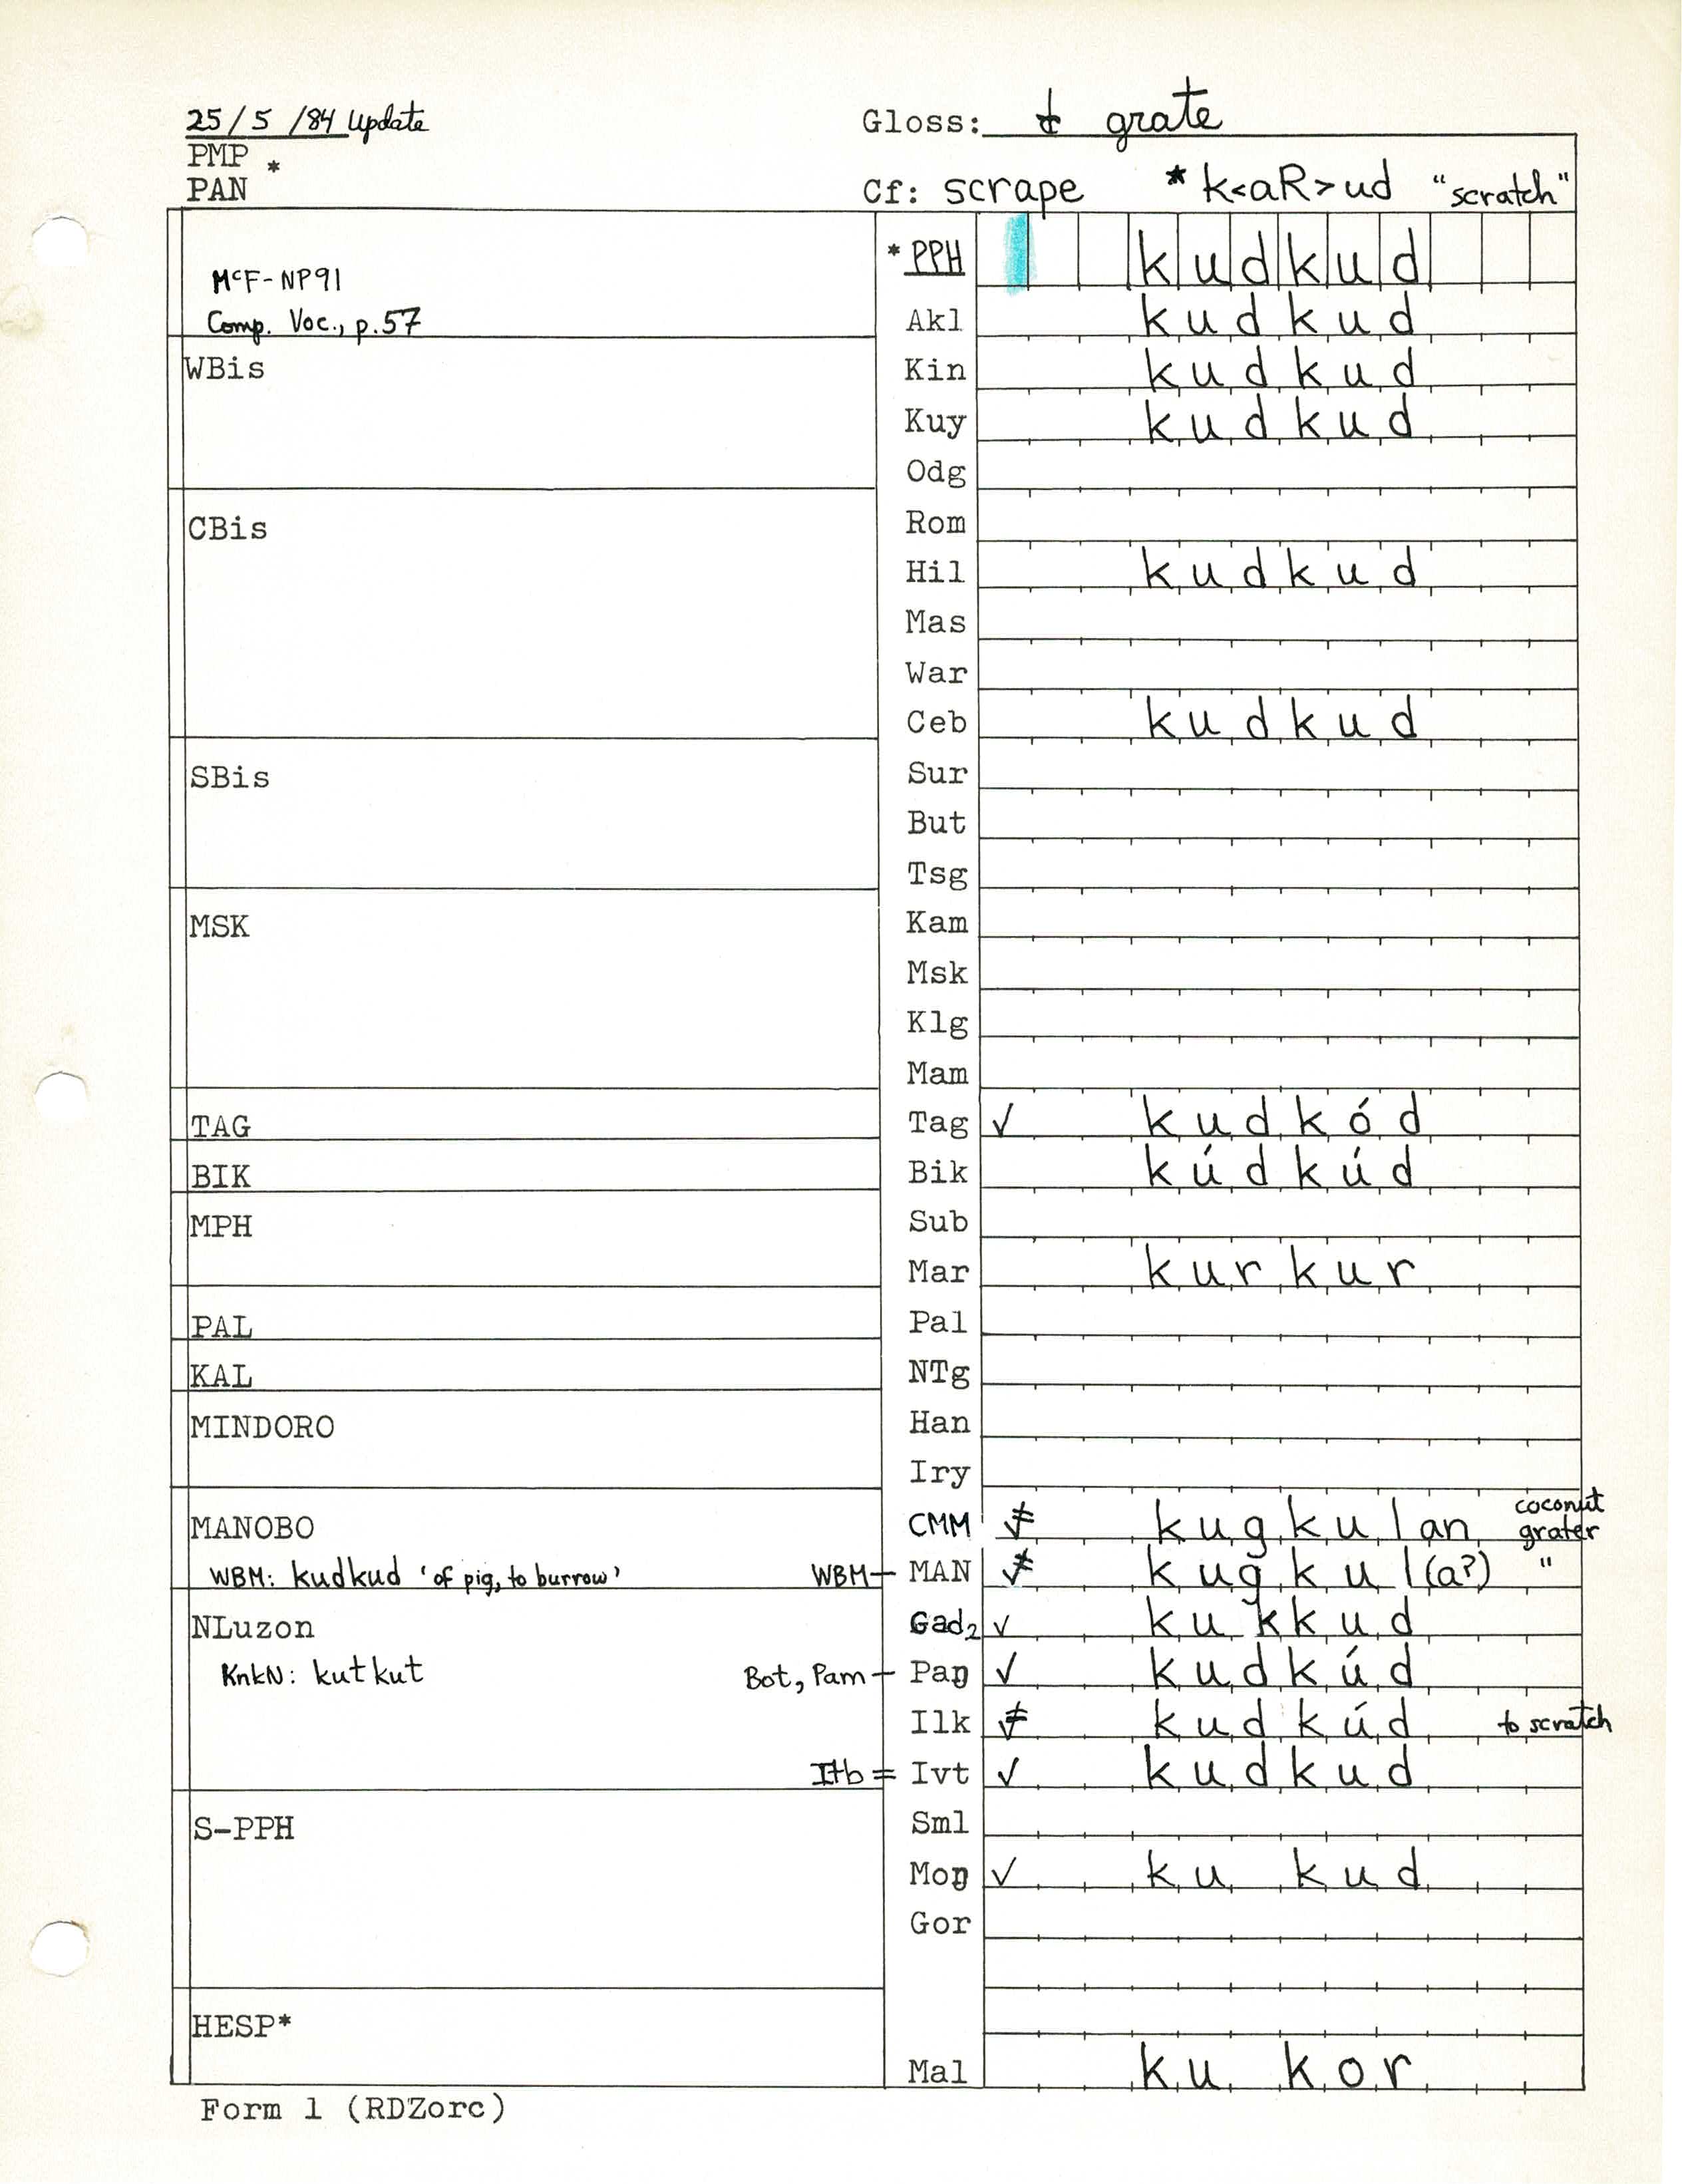 25/5/84 update
Gloss: grate
PMP *
PAN
Cf: scrape *k<aR>ud "scratch"
* PPH kudkud
McF-NP91
Comp. Voc., p.57
Akl kudkud
WBis
Kin kudkud
Kuy kudkud
Odg
CBis
Rom
Hil kudkud
Mas
War
Ceb kudkud
SBis
Sur
But
Tsg
MSK
Kam
Msk
Klg
Mam
TAG
Tag ✓ kudkód
BIK
Bik kúdkúd
MPH
Sub
Mar kurkur
PAL
Pal
KAL
NTg
MINDORO
Han
Iry
MANOBO
CMM ≠ kugkulan coconut grater
WBM: kudkud 'of pig, to burrow' WBM - MAN ≠ kugkul(a?) "
NLuzon
Gad2 ✓ kukkud
KnkN: kutkut Bot, Pam - Paŋ ✓ kudkúd
Ilk ≠ kudkúd to scratch
Itb = Ivt ✓ kudkud
S-PPH
Sml
Moŋ ✓ ku kud
Gor
HESP*
Mal ku kor
Form 1 (RDZorc)